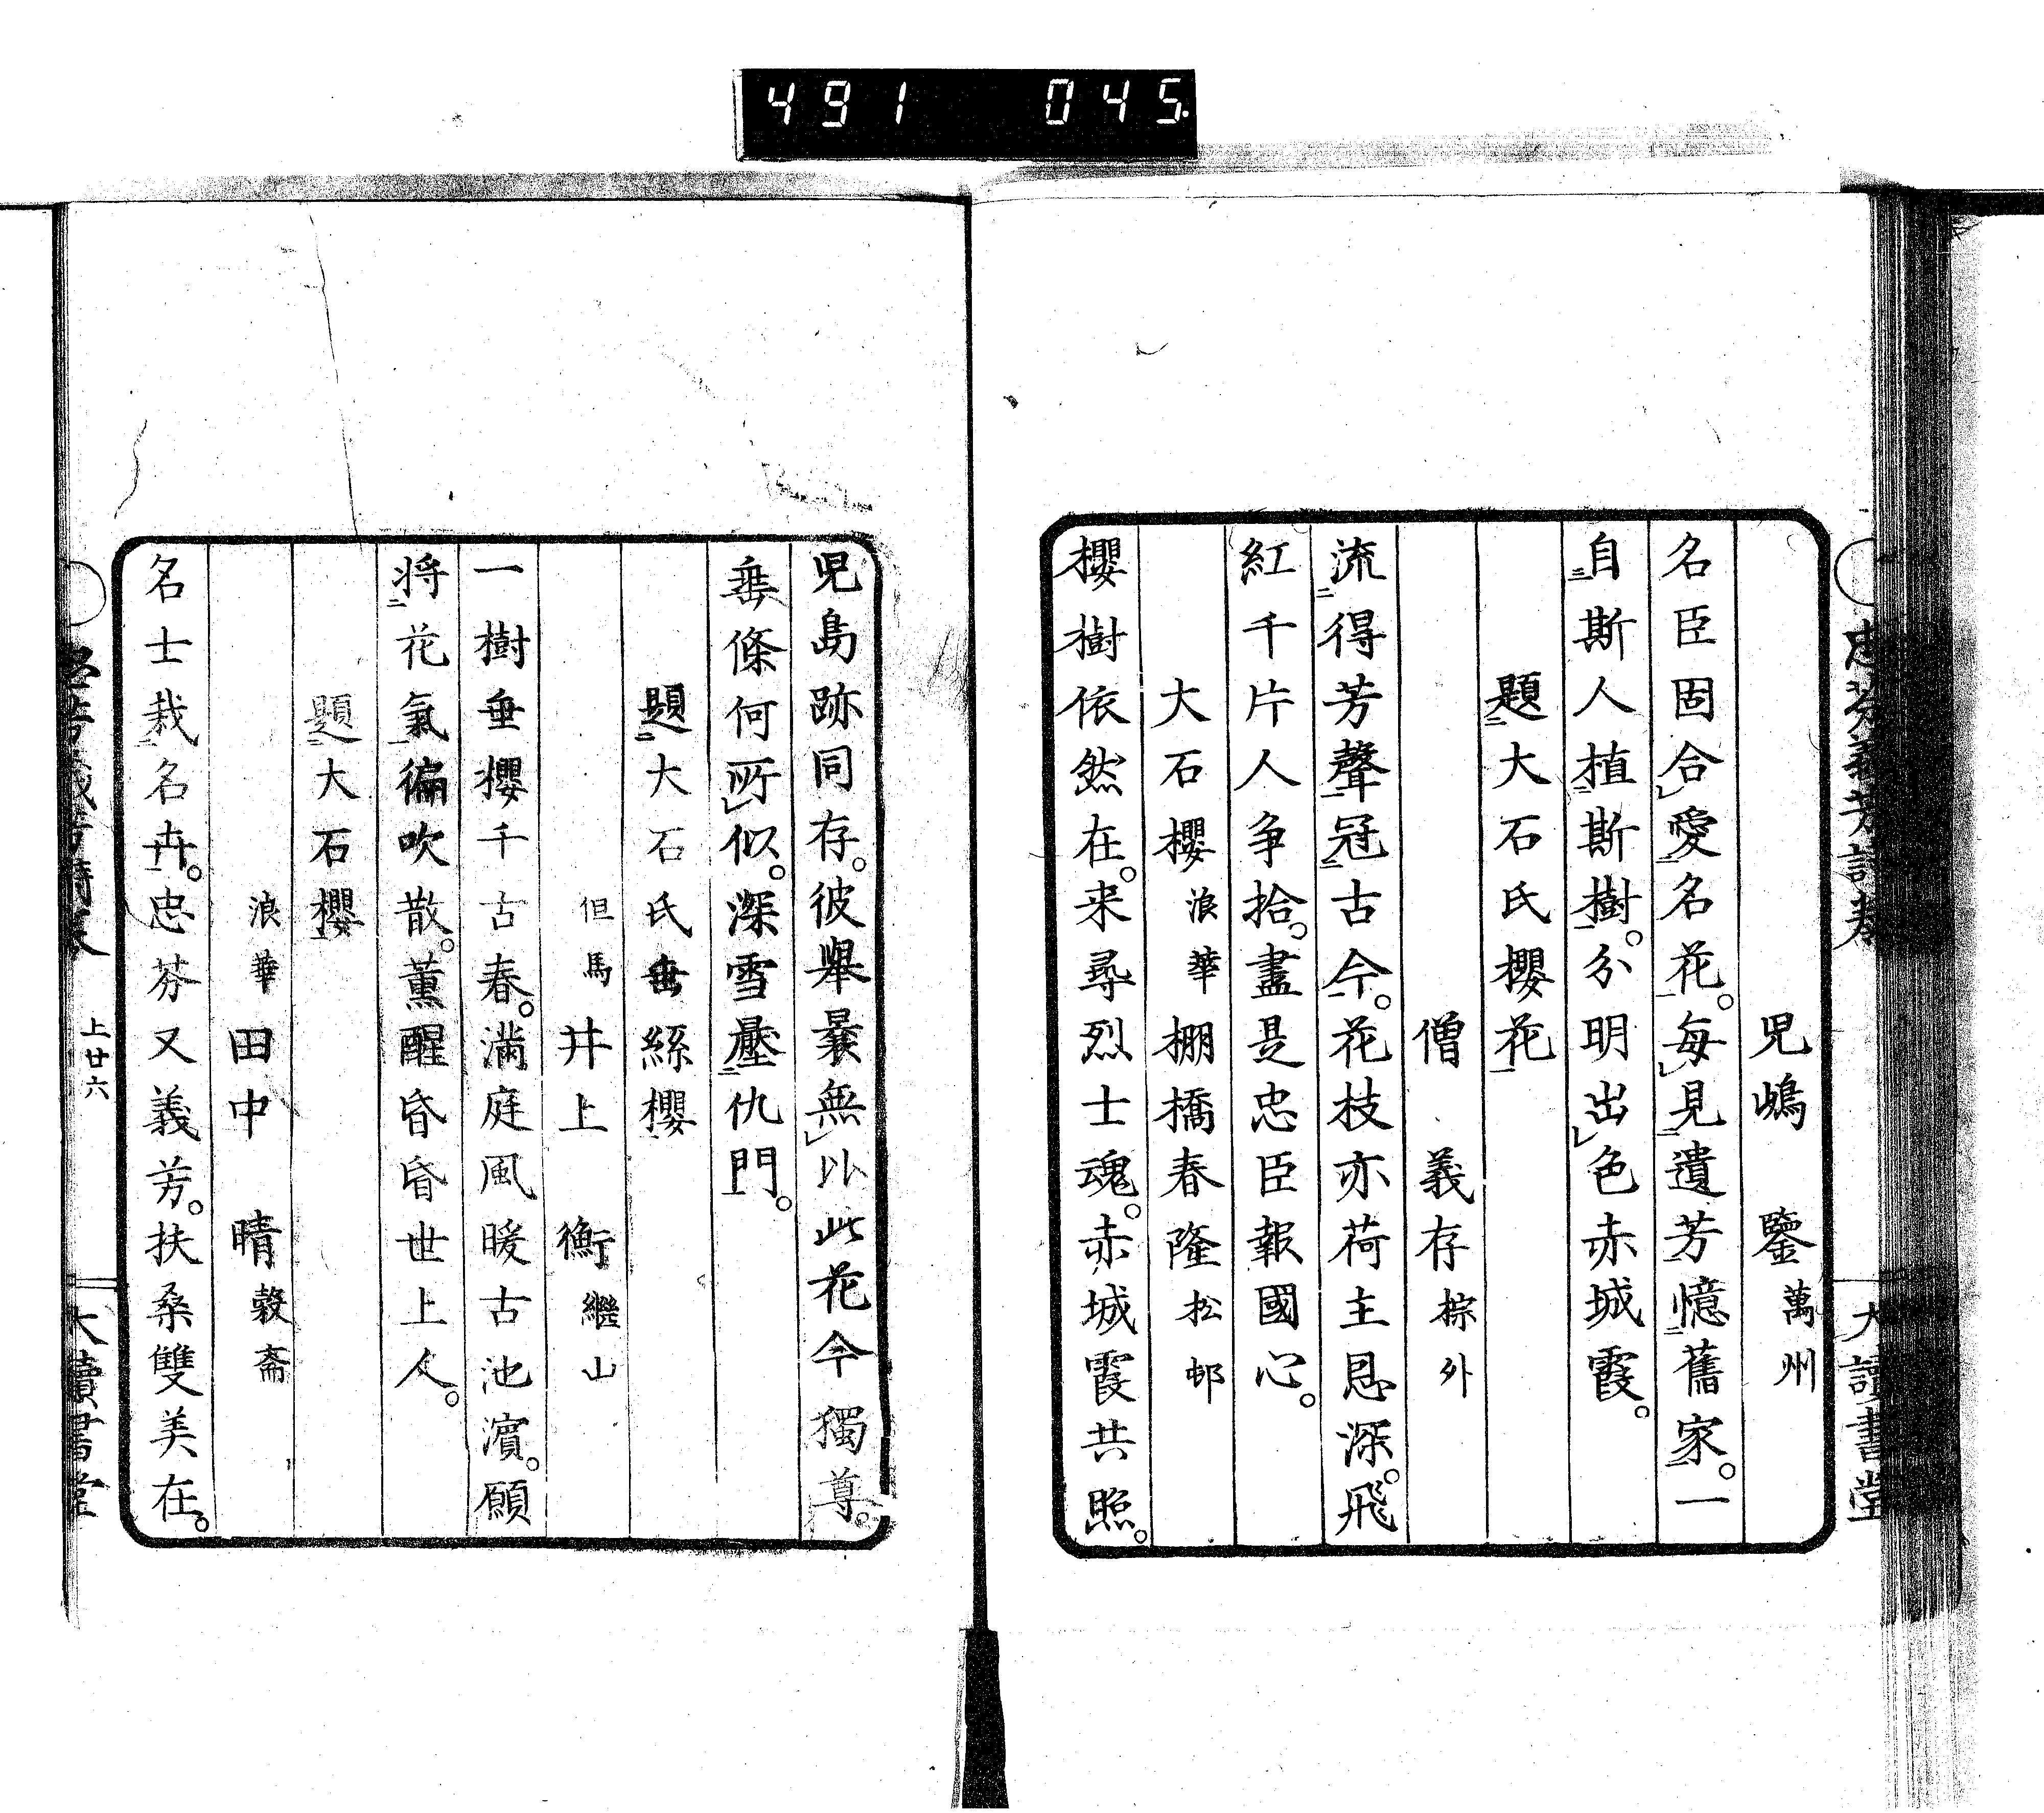 491 045.
兒嶋 鑒 萬州
名臣固合愛名花。每見遺芳憶舊家。一
自斯人植斯樹。分明出色赤城霞。
題大石氏櫻花
僧 義存 棕外
流得芳聲冠古今。花枝亦荷主恩深。飛
紅千片人爭拾。盡是忠臣報國心。
大石櫻 浪華 棚橋春隆 松邨
櫻樹依然在。来尋烈士魂。赤城霞共照。
忠芬義芳詩卷
大讀書堂
兒島跡同存。彼舉㬥無以此花今獨尊。
垂條何所似。深雪壓仇門。
題大石氏垂絲櫻
但馬 井上 衡 繼山
一樹垂櫻千古春。滿庭風暖古池濱。願
将花氣徧吹散。薫醒昏昏世上人。
題大石櫻
浪華 田中 晴 穀齋
名士栽名卉。忠芬又義芳。扶桑雙美在。
忠芬義芳詩卷 上廿六
大讀書堂